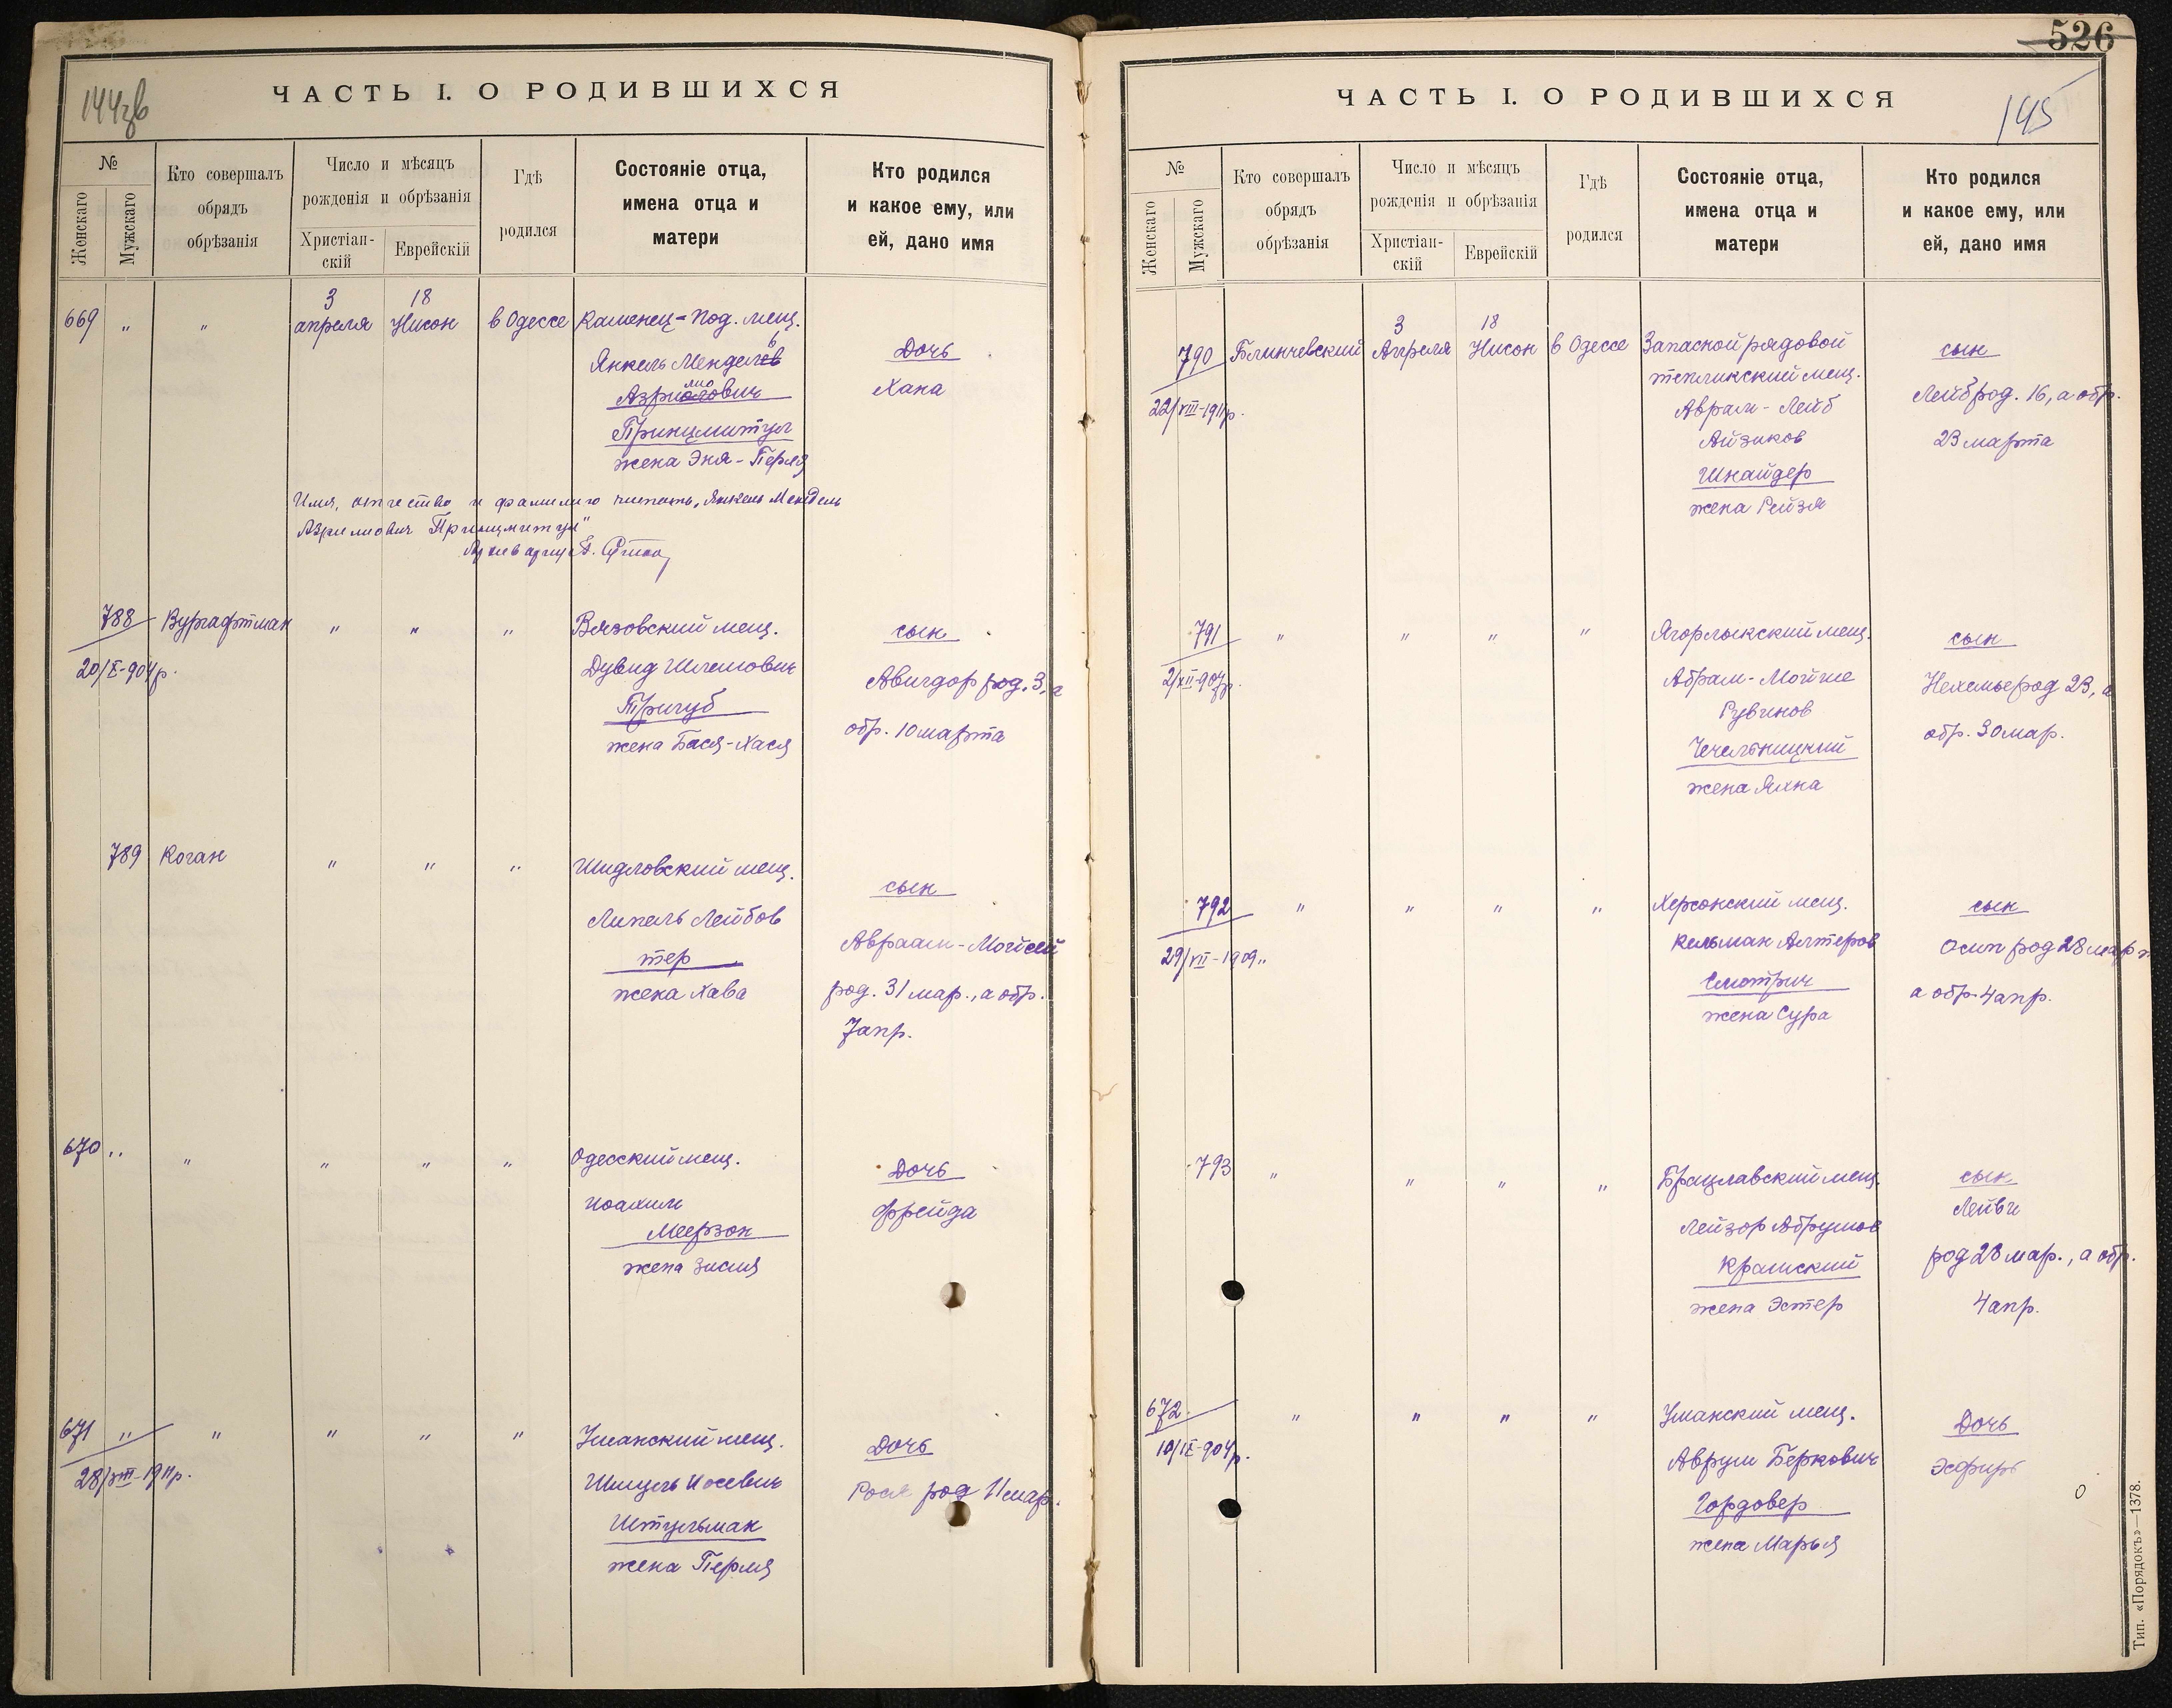 144зв
ЧАСТЬ I. О РОДИВШИХСЯ
№
Женскаго
Мужскаго
Кто совершалъ
обрядъ
обрѣзанія
Число и мѣсяцъ
рожденія и обрѣзанія
Христіан-
скій
Еврейскій
Гдѣ
родился
Состояніе отца,
имена отца и
матери
Кто родился
и какое ему, или
ей, дано имя
3 18
669 " " апреля Нисон в Одессе Каменец-Под. мещ.
Янкель Менделев
Азриолович
Принцмитул
жена Эня-Перля
Дочь
Хана
Имя, отчество и фамилию читать, Янкель Мендель
Азрилиович Принцмитул"
Архивариус
788 Вургафтман " " " Вязовский мещ.
20/X-904р.
Дувид Шлемович
Тригуб
жена Бася-Хася
сын
Авигдор род. 3, а
обр. 10 марта
789 Коган " " " Шидловский мещ.
Липель Лейбов
тер
жена Хава
сын
Авраам-Мойсей
род. 31 мар., а обр.
7 апр.
670 " " " " " Одесский мещ.
Иоахим
Меерзон
жена Зисля
Дочь
Фрейда
671 " " " " " Уманский мещ.
28/VIII-1911р.
Шмуль Иосевич
Штульман
жена Перля
Дочь
Рося род 11 мар.
526
145
ЧАСТЬ I. О РОДИВШИХСЯ
№
Женскаго
Мужскаго
Кто совершалъ
обрядъ
обрѣзанія
Число и мѣсяцъ
рожденія и обрѣзанія
Христіан-
скій
Еврейскій
Гдѣ
родился
Состояніе отца,
имена отца и
матери
Кто родился
и какое ему, или
ей, дано имя
3 18
790 Блинчевский Апреля Нисон в Одессе Запасной рядовой
22/VIII-1911р.
тепликский мещ.
Аврам-Лейб
Айзиков
Шнайдер
жена Рейзя
сын
Лейб род. 16, а обр.
23 марта
791 " " " " Ягорлыкский мещ.
2/XII-907р.
Абрам-Мойше
Рувинов
Чечельницкий
жена Яхна
сын
Нехемье род 23, а
обр. 30 мар.
792 " " " " Херсонский мещ.
29/VII-1909"
Кельман Алтеров
Смотрич
жена Сура
сын
Осип род 28 март
а обр. 4 апр.
793 " " " " Брацлавский мещ.
Лейзор Абрумов
Крамский
жена Эстер
сын
Лейви
род 28 мар., а обр.
4 апр.
672 " " " " Уманский мещ.
10/IX-904р.
Аврум Беркович
Гордовер
жена Марья
Дочь
Эсфирь
Тип. «Порядокъ»—1378.